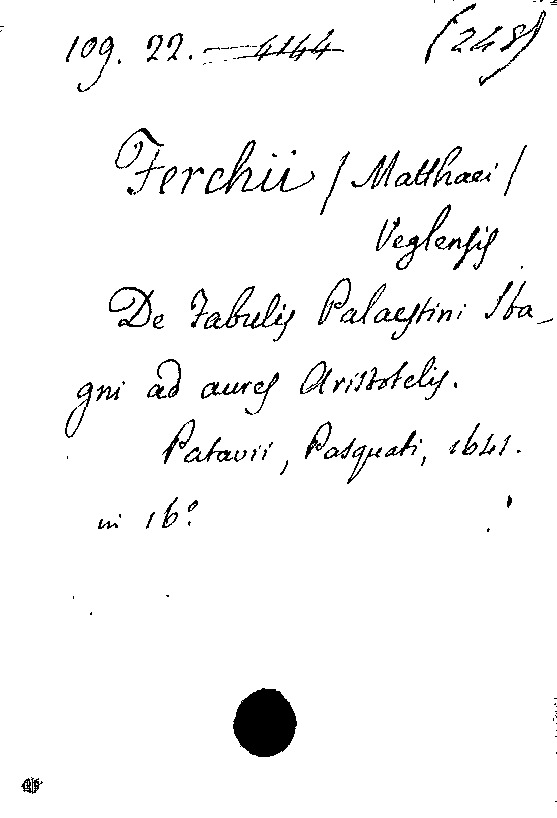 109. 22. 4144 (248)
Ferchii / Matthaei /
Veglensis
De Fabulis Palaestini Sta-
gni ad aures Aristotelis.
Patavii, Pasquati, 1641.
in 16º.